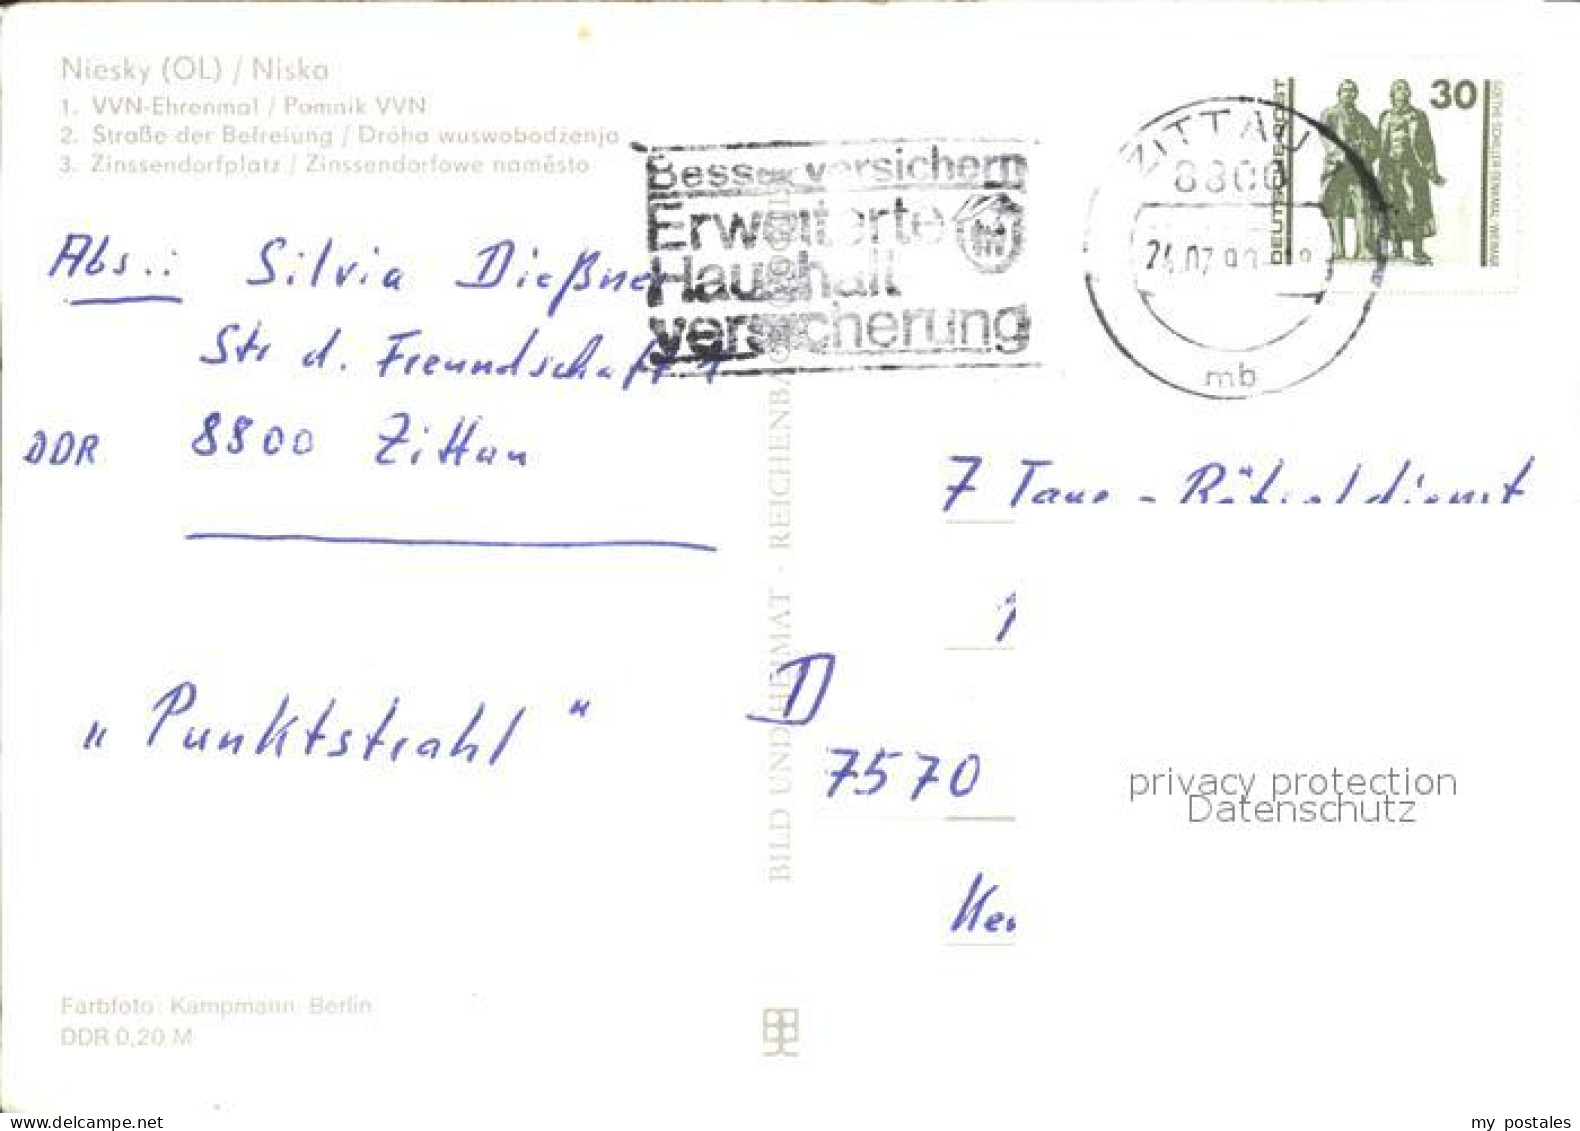 Niesky (OL) / Niska
1. VVN-Ehrenmal / Pomnik VVN
2. Straße der Befreiung / Dróha wuswobodźenja
3. Zinssendorfplatz / Zinssendorfowe naměsto
Besser versichern
Erweiterte
Haushalt
versicherung
ZITTAU
8800
mb
30
DEUTSCHE POST
GOETHE-SCHILLER-DENKMAL WEIMAR
Abs.: Silvia Dießner
Str d. Freundschaft 1
DDR 8800 Zittau
7 Tage - Rätseldienst
„Punktstrahl"
D
7570
BILD UND HEIMAT · REICHENBACH
privacy protection
Datenschutz
Farbfoto: Kampmann, Berlin
DDR 0,20 M
www.delcampe.net
my_postales